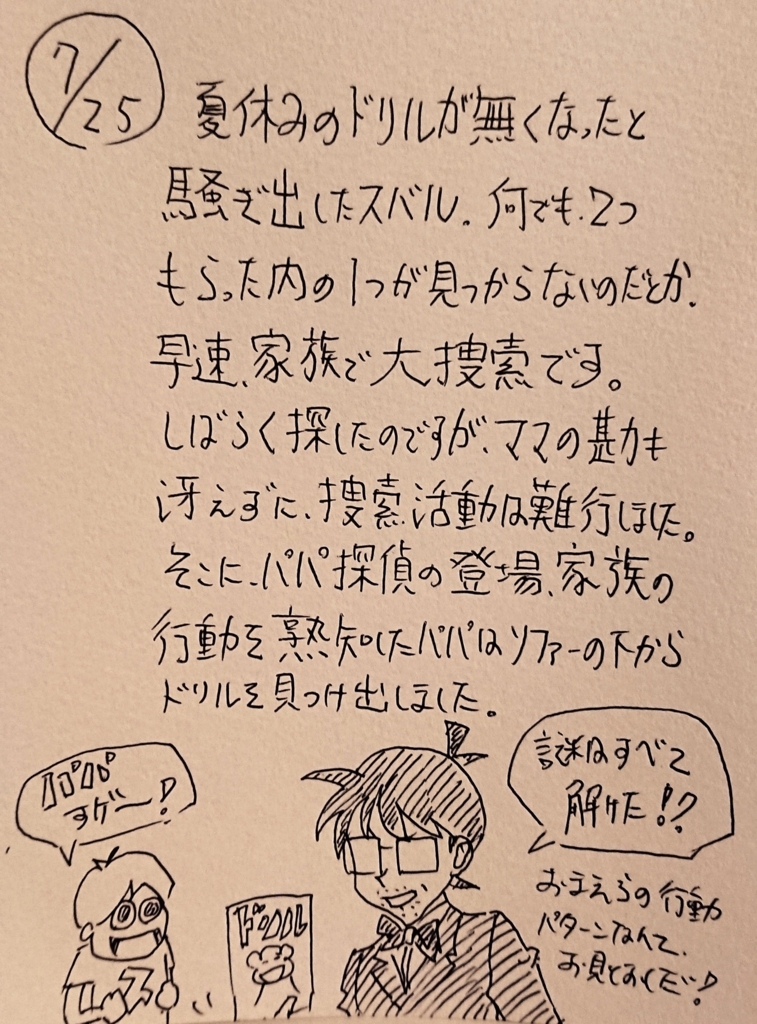 7/25
夏休みのドリルが無くなったと
騒ぎ出したスバル。何でも、2つ
もらった内の1つが見つからないのだとか。
早速、家族で大捜索です。
しばらく探したのですが、ママの勘も
冴えずに、捜索活動は難行しました。
そこに、パパ探偵の登場、家族の
行動を熟知したパパはソファーの下から
ドリルを見つけ出しました。
パパ
すゲー!
ドリル
謎はすべて
解けた!?
おまえらの行動
パターンなんて、
お見とおしだ!